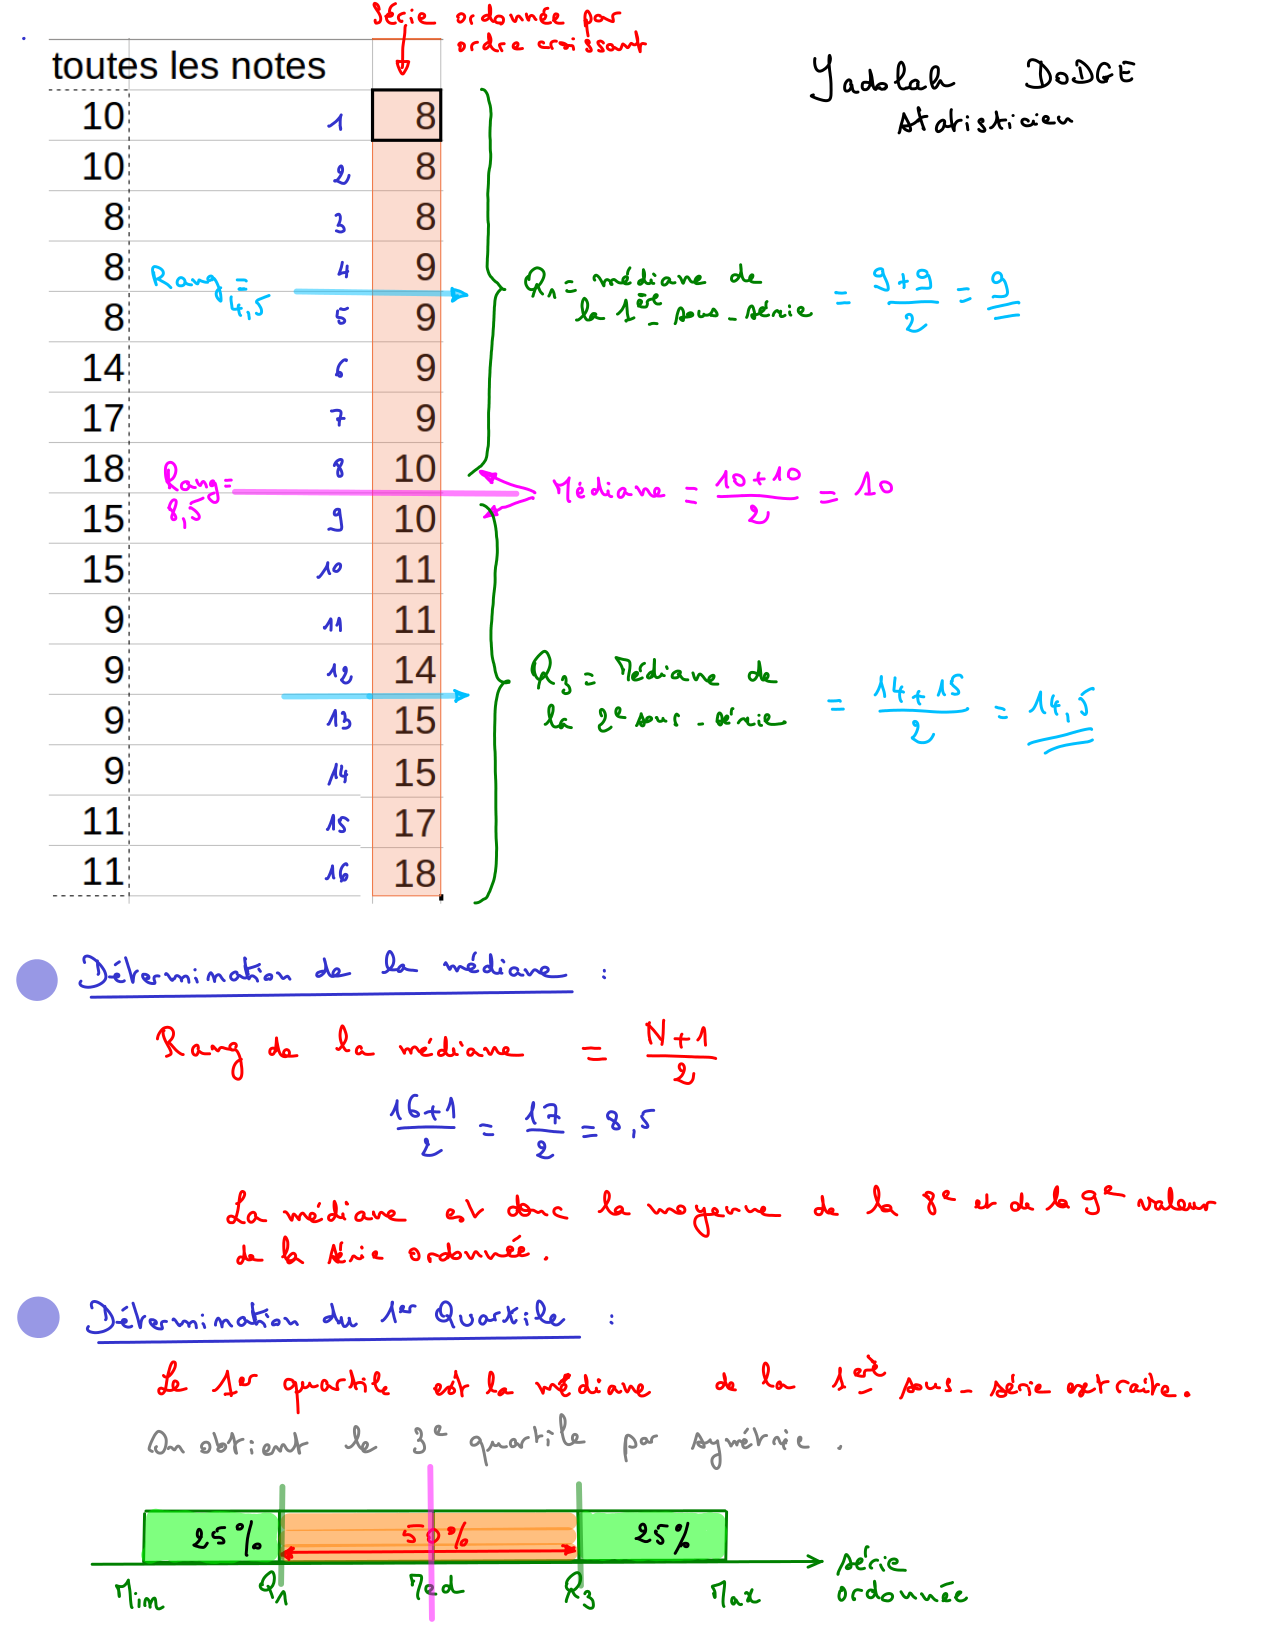 Série ordonnée par
ordre croissant
toutes les notes
Yadolah DODGE
statisticien
10 1 8
10 2 8
8 3 8
8 4 9
Rang = 4,5
Q1 = médiane de
la 1ère sous-série = (9+9)/2 = 9
8 5 9
14 6 9
17 7 9
18 8 10
Rang = 8,5
Médiane = (10+10)/2 = 10
15 9 10
15 10 11
9 11 11
9 12 14
Q3 = Médiane de
la 2e sous-série = (14+15)/2 = 14,5
9 13 15
9 14 15
11 15 17
11 16 18
Détermination de la médiane :
Rang de la médiane = (N+1)/2
(16+1)/2 = 17/2 = 8,5
La médiane est donc la moyenne de la 8e et de la 9e valeur
de la série ordonnée.
Détermination du 1er Quartile :
Le 1er quartile est la médiane de la 1ère sous-série extraite.
On obtient le 3e quartile par symétrie.
25% 50% 25%
série
ordonnée
Min Q1 Med Q3 Max